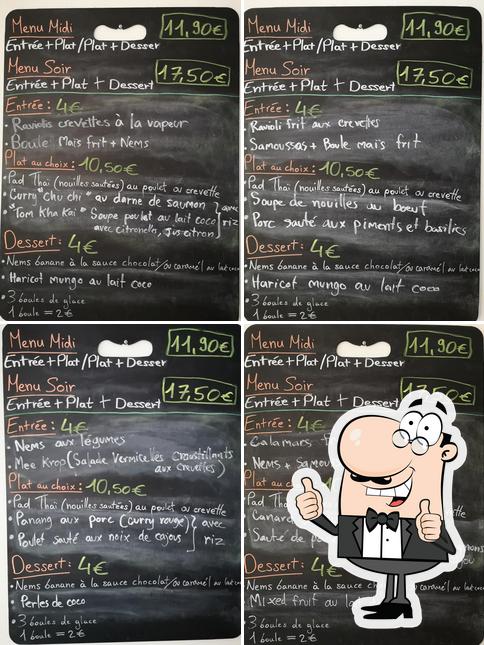 Menu Midi 11,90€
Entrée+Plat/Plat+Desser
Menu Soir 17,50€
Entrée+Plat+Dessert
Entrée: 4€
• Raviolis crevettes à la vapeur
• Boule Maïs frit + Nems
Plat au choix: 10,50€
• Pad Thaï (nouilles sautées) au poulet ou crevette
• Curry "chu chi" au darne de saumon
• "Tom Kha Kaï" Soupe poulat au lait coco
avec citronelle, jus citron
avec riz
Dessert: 4€
• Nems banane à la sauce chocolat/ou caramel au lait coco
• Haricot mungo au lait coco
• 3 boules de glace
1 boule = 2€
Menu Midi 11,90€
Entrée+Plat/Plat+Desser
Menu Soir 17,50€
Entrée+Plat+Dessert
Entrée: 4€
• Ravioli frit aux crevettes
• Samoussas + Boule maïs frit
Plat au choix: 10,50€
• Pad Thaï (nouilles sautées) au poulet ou crevette
• Soupe de nouilles au bœuf
• Porc sauté aux piments et basilics
Dessert: 4€
• Nems banane à la sauce chocolat/ou caramel au lait coco
• Haricot mungo au lait coco
• 3 boules de glace
1 boule = 2€
Menu Midi 11,90€
Entrée+Plat/Plat+Desser
Menu Soir 17,50€
Entrée+Plat+Dessert
Entrée: 4€
• Nems aux légumes
• Mee Krop (Salade Vermicelles Croustillants
aux crevettes)
Plat au choix: 10,50€
• Pad Thaï (nouilles sautées) au poulet ou crevette
• Panang aux porc (Curry rouge)
• Poulet sauté aux noix de cajous
avec riz
Dessert: 4€
• Nems banane à la sauce chocolat/ou caramel au lait
• Perles de coco
• 3 boules de glace
1 boule = 2€
Menu Midi 11,90€
Entrée+Plat/Plat+Desser
Menu Soir 17,50€
Entrée+Plat
Entrée: 4€
Calamars
• Nems +
Plat au
Pad Tha
• Sauté de
Dessert: 4€
• Nems banane ou caramel au lait
Mixed fruit au
• 3 boules de
1 boule = 2€